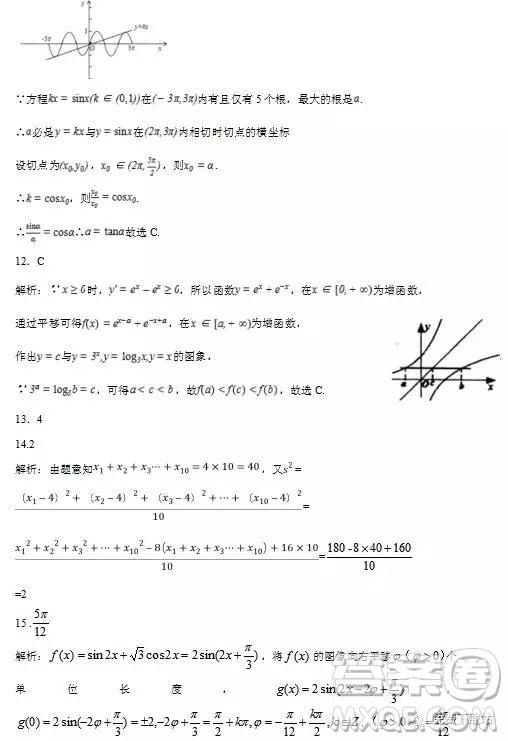 y
1
y=kx
-3π
0
3π
x
∵方程kx = sinx(k ∈ (0,1))在(− 3π,3π)内有且仅有 5 个根，最大的根是α.
∴α必是y = kx与y = sinx在(2π,3π)内相切时切点的横坐标
设切点为(x₀,y₀)，x₀ ∈ (2π, 5π/2)，则x₀ = α.
∴k = cosx₀，则y₀/x₀ = cosx₀.
∴sinα/α = cosα∴α = tanα故选 C.
12．C
解析：∵x ≥ 0时，y′ = eˣ − eˣ ≥ 0，所以函数y = eˣ + e⁻ˣ，在x ∈ [0, + ∞)为增函数，
通过平移可得f(x) = eˣ⁻ᵃ + e⁻ˣ⁺ᵃ，在x ∈ [a, + ∞)为增函数，
作出y = c与y = 3ˣ,y = log₃x,y = x的图象，
∵ 3ᵃ = log₃b = c，可得a < c < b，故f(a) < f(c) < f(b)，故选 C.
y
a
O
c
b
x
13．4
14.2
解析：由题意知x₁ + x₂ + x₃⋯ + x₁₀ = 4 × 10 = 40，又s² =
(x₁ − 4)² + (x₂ − 4)² + (x₃ − 4)² + ⋯ + (x₁₀ − 4)²/10 =
x₁² + x₂² + x₃² + ⋯ + x₁₀² − 8(x₁ + x₂ + x₃⋯ + x₁₀) + 16 × 10/10 = 180 - 8 × 40 + 160/10
=2
15 . 5π/12
解析：f(x) = sin 2x + √3 cos 2x = 2sin(2x + π/3)，将 f(x) 的图像向右平移 φ（φ > 0）个
单位长度，g(x) = 2 sin(2x − 2φ + π/3)
g(0) = 2 sin(−2φ + π/3) = ±2, −2φ + π/3 = π/2 + kπ, φ = − π/12 + kπ/2, k∈Z